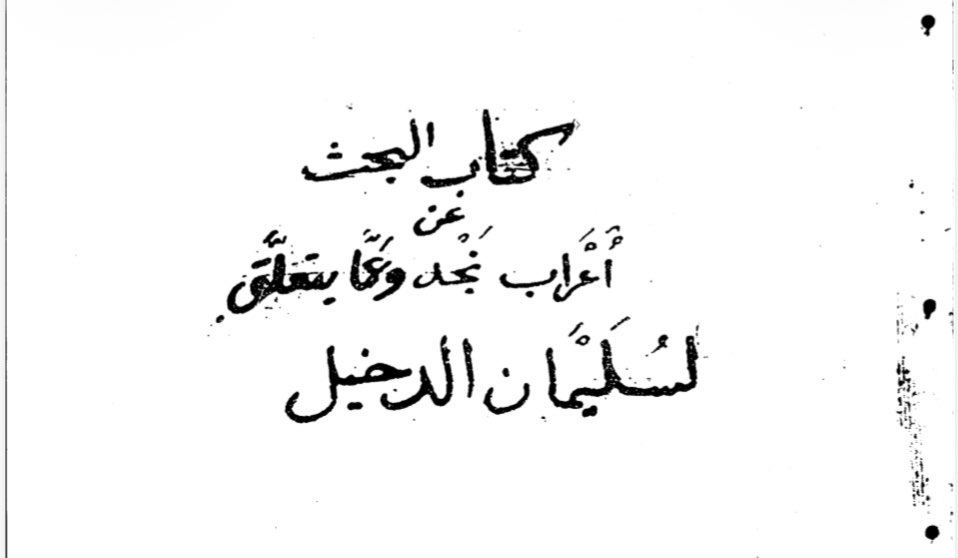 كتاب البحث
عن
أعراب نَجْد وعَمَّا يتعلَّق
لسُلَيْمان الدخيل